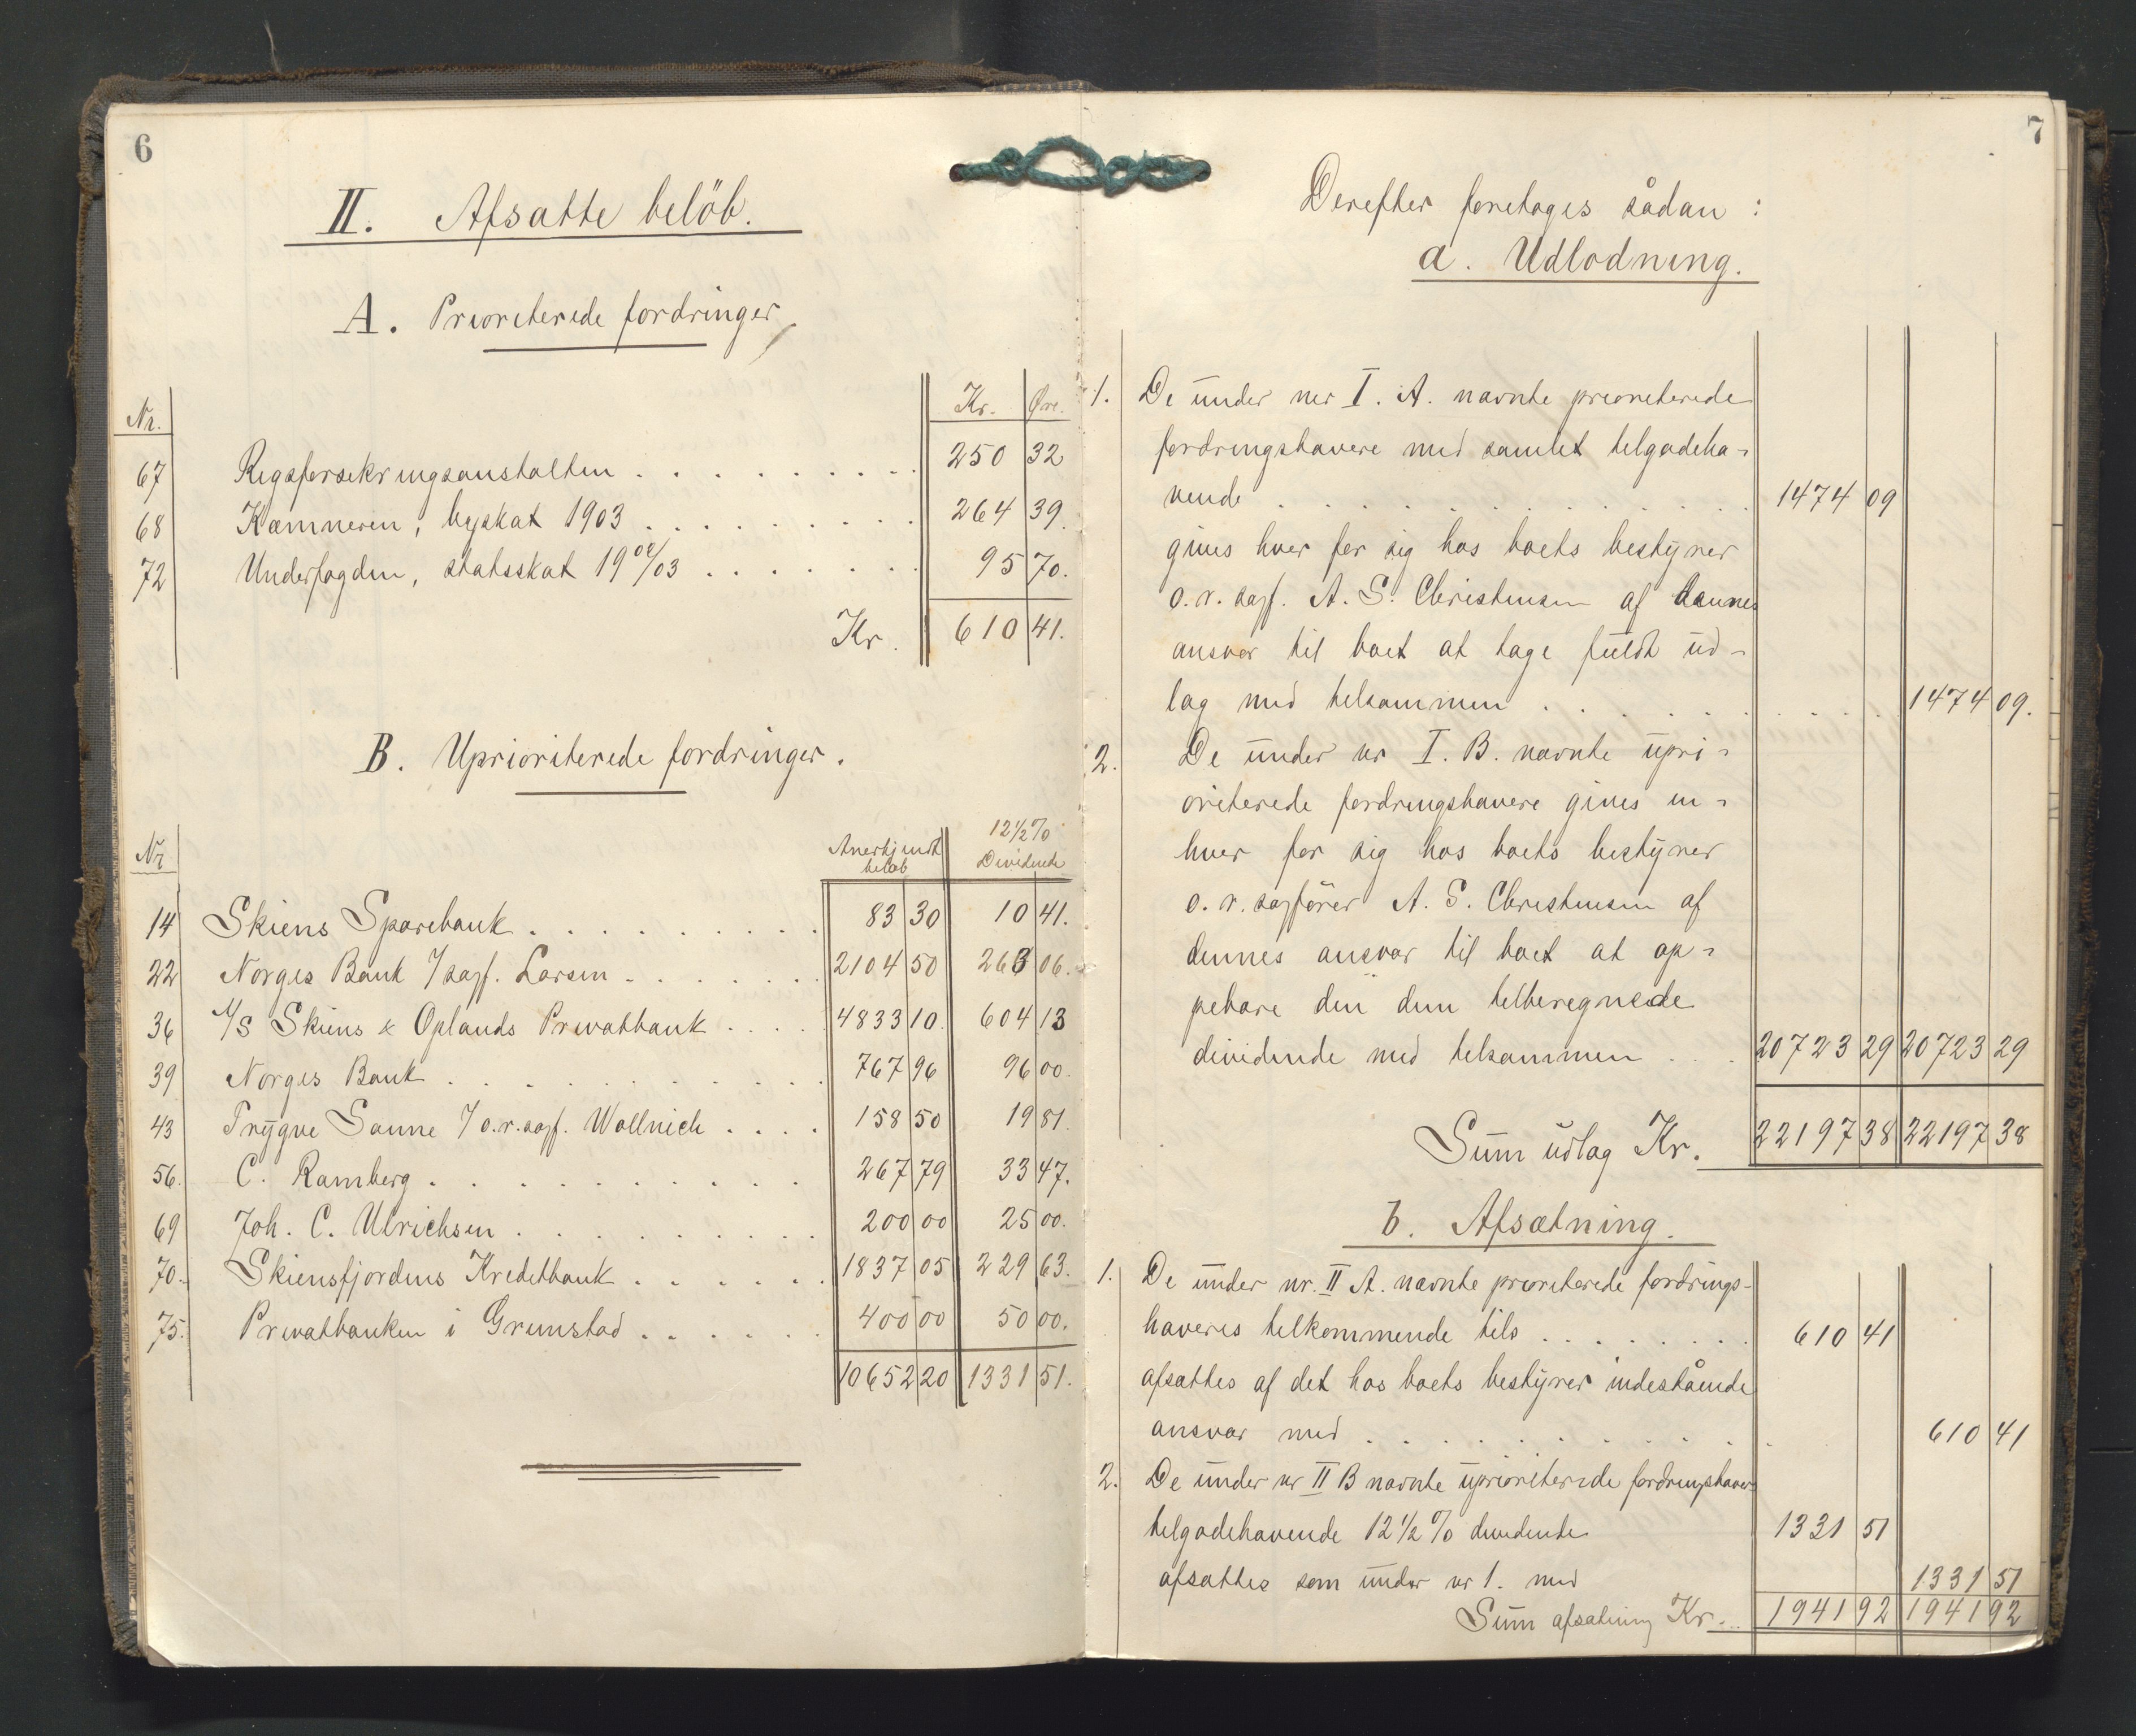 6
II. Afsatte belöb.
A. Prioriterede fordringer
Nr. Kr. Øre.
67 Rigsforsikringsanstalten . . . . . . . . 250 32
68 Kæmneren, byskat 1903 . . . . . . . . 264 39.
72 Underfogden, statsskat 1902/03 . . . . . . . 95 70.
Kr. 610 41.
B. Uprioriterede fordringer.
Nr Anerkjendt beløb 12½% Dividende
14 Skiens Sparebank . . . . . . . . . 83 30 10 41.
22 Norges Bank v/ sagf. Larsen . . . . . . 2104 50 263 06.
36 A/S Skiens & Oplands Privatbank . . . . 4833 10. 604 13
39 Norges Bank . . . . . . . . . . . 767 96 96 00.
43 Trygve Sanne v/ o.r.sagf. Wollnick . . . . 158 50 19 81.
56. C. Ramberg . . . . . . . . . . 267 79 33 47.
69 Joh. C. Ulrichsen . . . . . . . . . 200 00 25 00.
70. Skiensfjordens Kreditbank . . . . . . 1837 05 229 63.
75. Privatbanken i Grimstad . . . . . . 400 00 50 00.
10652 20 1331 51.
7
Derefter foretages sådan :
a. Udlodning.
1. De under ner I. A. nævnte prioriterede
fordringshavere med samlet tilgodeha-
vende . . . . . . . . . . . . . 1474 09
gives hver for sig hos boets bestyrer
o.r. sagf. A. S. Christensen af dennes
ansvar til boet at tage fuldt ud-
lag med tilsammen . . . . . . . . . . 1474 09.
2. De under nr I. B. nævnte upri-
oriterede fordringshavere gives en-
hver for sig hos boets bestyrer
o. r. sagfører A. S. Christensen af
dennes ansvar til boet at op-
pebære den dem tilberegnede
dividende med tilsammen . . . 20723 29 20723 29
Sum udlag Kr. 22197 38 22197 38
b. Afsætning.
1. De under nr. II A. nævnte prioriterede fordrings-
haveres tilkommende tils . . . . . . . . 610 41
afsættes af det hos boets bestyrer indestående
ansvar med . . . . . . . . . . . . 610 41
2. De under nr II B nævnte uprioriterede fordringshaver
tilgodehavende 12½ % dividende 1331 51
afsættes som under nr 1. med 1331 51
Sum afsætning Kr... 1941 92 1941 92